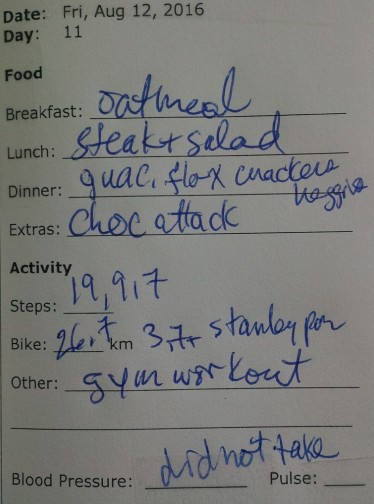 Date: Fri, Aug 12, 2016
Day: 11
Food
Breakfast: oatmeal
Lunch: steak + salad
Dinner: guac, flax crackers
veggies
Extras: choc attack
Activity
Steps: 19,917
Bike: 26.7 km 3.7+ stanley
Other: gym workout
did not take
Blood Pressure: Pulse: